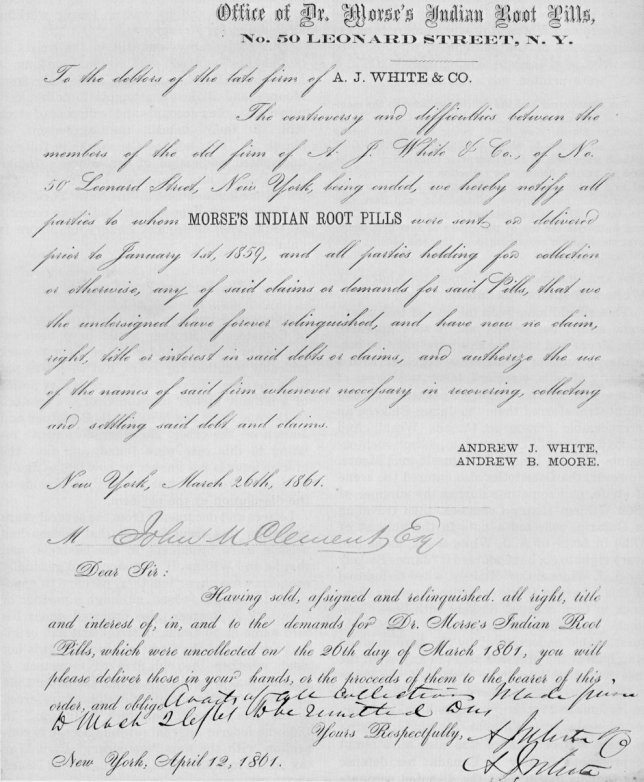 Office of Dr. Morse's Indian Root Pills,
No. 50 LEONARD STREET, N. Y.
To the debtors of the late firm of A. J. WHITE & CO.
The controversy and difficulties between the
members of the old firm of A. J. White & Co., of No.
50 Leonard Street, New York, being ended, we hereby notify all
parties to whom MORSE'S INDIAN ROOT PILLS were sent or delivered
prior to January 1st, 1859, and all parties holding for collection
or otherwise, any of said claims or demands for said Pills, that we
the undersigned have forever relinquished, and have now no claim,
right, title or interest in said debts or claims, and authorize the use
of the names of said firm whenever neccessary in recovering, collecting
and settling said debt and claims.
ANDREW J. WHITE,
ANDREW B. MOORE.
New York, March 26th, 1861.
M John M. Clement, Esq
Dear Sir:
Having sold, assigned and relinquished. all right, title
and interest of, in, and to the demands for Dr. Morse's Indian Root
Pills, which were uncollected on the 26th day of March 1861, you will
please deliver those in your hands, or the proceeds of them to the bearer of this
order, and oblige of all Collections Made
to be remitted
Yours Respectfully, A J White & Co
New York, April 12, 1861. A J White